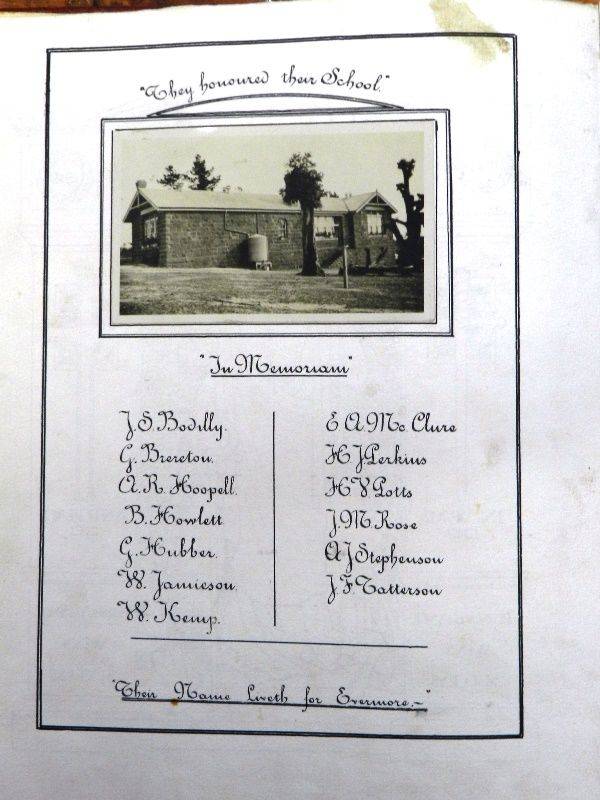 "They honoured their School."
"In Memoriam"
J.S. Bodilly.
G. Brereton.
A.R. Hoopell.
B. Howlett
G. Hubber.
W. Jamieson.
W. Kemp.
E.A. Mc Clure
H.J. Perkins
H V Potts
J.M Rose
A J Stephenson
J.F Tatterson
"Their Name Liveth for Evermore.~"